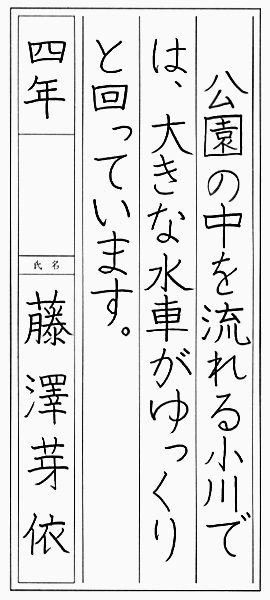 公園の中を流れる小川で
は、大きな水車がゆっくり
と回っています。
四年
氏名
藤澤芽依